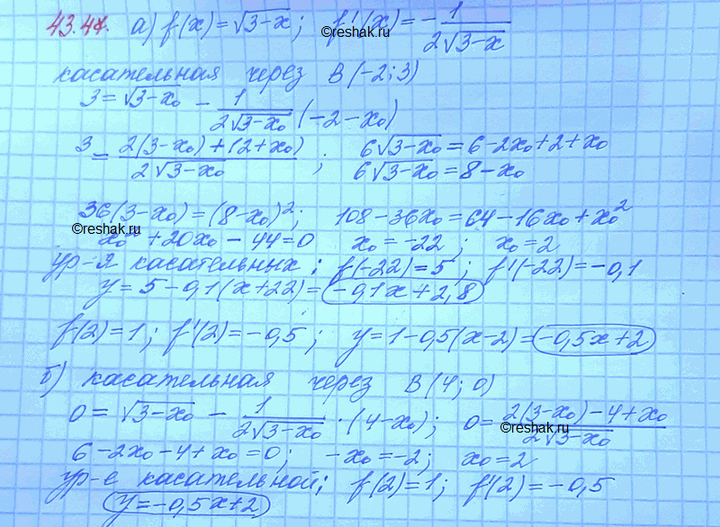 43.47. а) f(x) = √(3-x); f'(x) = - 1/(2√(3-x))
©reshak.ru
касательная через B(-2; 3)
3 = √(3-x₀) - 1/(2√(3-x₀)) (-2-x₀)
3 = (2(3-x₀)+(2+x₀))/(2√(3-x₀)); 6√(3-x₀) = 6-2x₀+2+x₀
6√(3-x₀) = 8-x₀
36(3-x₀) = (8-x₀)²; 108-36x₀ = 64-16x₀+x₀²
©reshak.ru
x₀²+20x₀-44=0 x₀=-22; x₀=2
ур-я касательных: f(-22)=5; f'(-22)=-0,1
y=5-0,1(x+22)=-0,1x+2,8
f(2)=1; f'(2)=-0,5; y=1-0,5(x-2)=-0,5x+2
б) касательная через B(4; 0)
0 = √(3-x₀) - 1/(2√(3-x₀)) · (4-x₀); 0 = (2(3-x₀)-4+x₀)/(2√(3-x₀))
©reshak.ru
6-2x₀-4+x₀=0; -x₀=-2; x₀=2
ур-е касательной: f(2)=1; f'(2)=-0,5
y=-0,5x+2